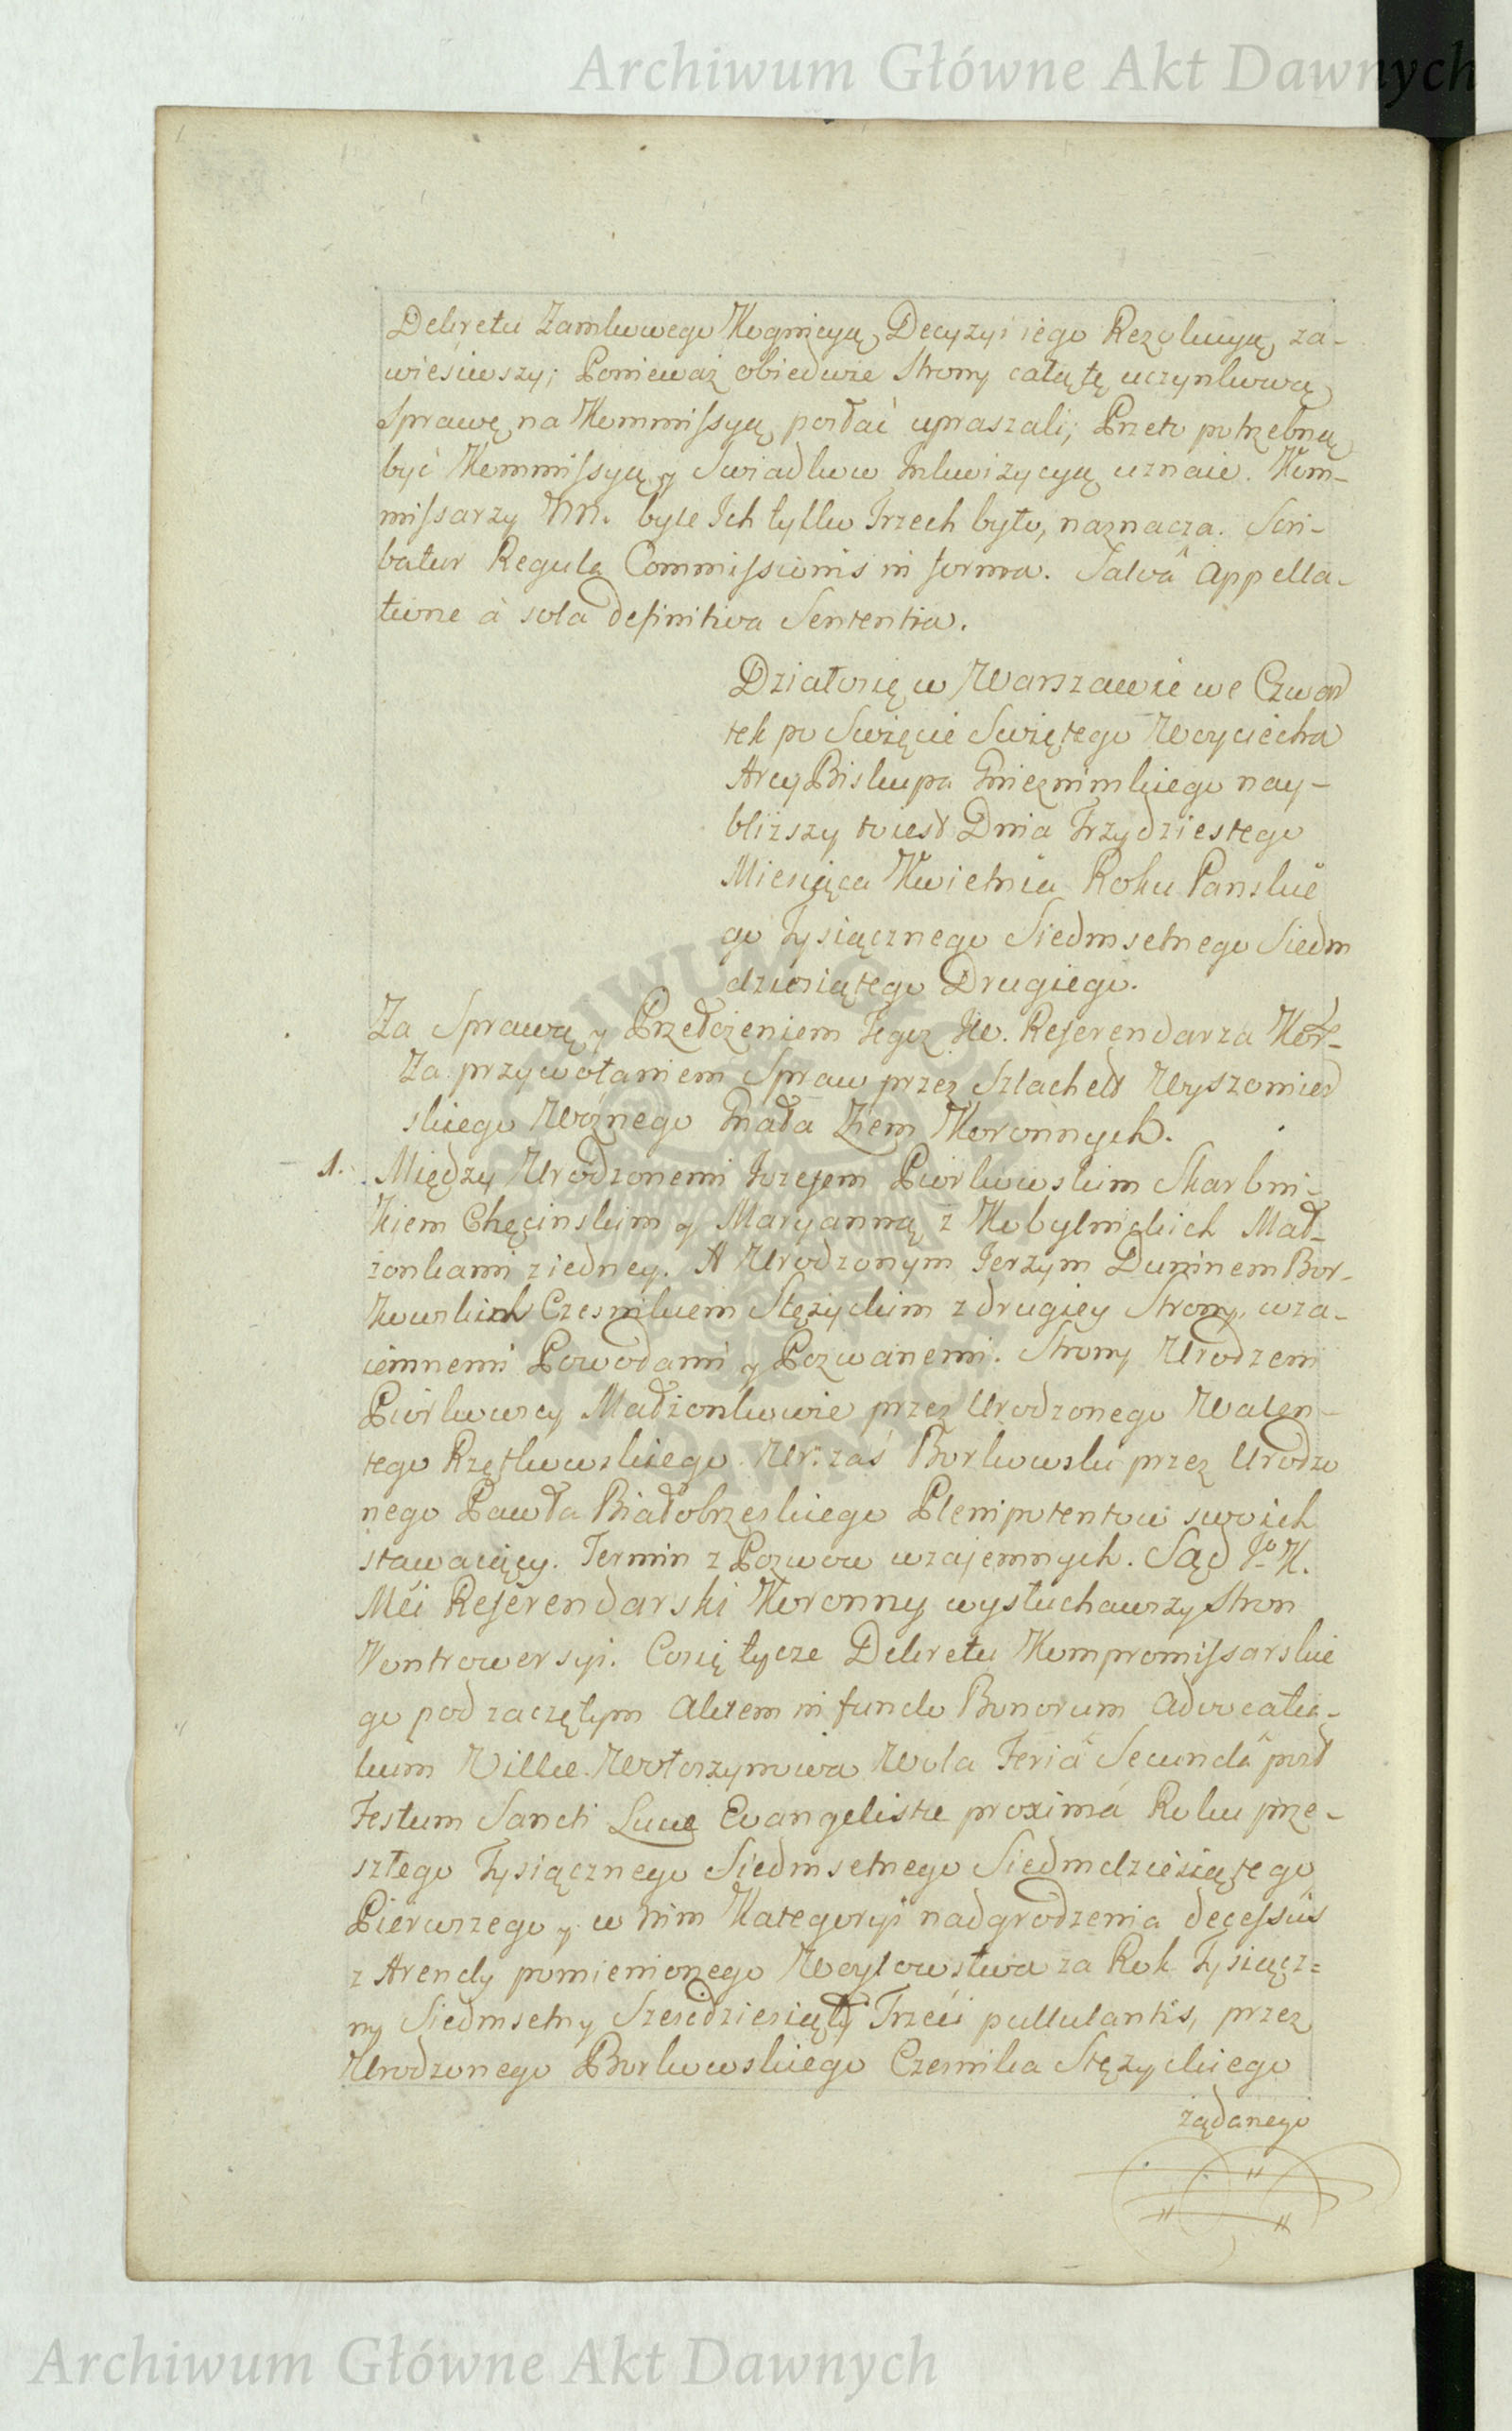 Archiwum Główne Akt Dawnych
Dekretu Zamkowego Kognicyą, Decyzyi iego Rezolucyą, za-
wiesiwszy; Ponieważ obiedwie Strony całą tę uczynkową
Sprawę na Kommissyą posłać upraszali; Przeto potrzebną
być Kommissyą y Swiadkow Inkwizycyą uznaie. Kom-
missarzy NN. byle Ich tylko Trzech było, naznacza. Scri-
batur Regula Commissionis in forma. Salvâ Appella-
tione à sola definitiva Sententia.
Działosię w Warszawie we Czwar
tek po Swięcie Swiętego Woyciecha
Arcy Biskupa Gniezninskiego nay-
bliższy to iest Dnia Trzydziestego
Miesiąca Kwietnia Roku Panskie
go Tysiącznego Siedmsetnego Siedm
dziesiątego Drugiego.
Za Sprawą y Przełożeniem Tegoż JW. Referendarza Kor-
Za przywołaniem Spraw przez Szlachet Wyszomier
skiego Woznego Gnała Ziem Koronnych.
1. Między Urodzonemi Jozefem Piorkowskim Skarbni-
kiem Chęcinskim y Maryanną z Kobylnickich Mał-
żonkami z iedney. A Urodzonym Jerzym Duninem Bor-
kowskim Czesnikiem Stężyckim z drugiey Strony, wza-
iemnemi Powodami y Pozwanemi. Strony Urodzeni
Piorkowscy Małżonkowie przez Urodzonego Walen-
tego Rzętkowskiego Ur: zaś Borkowski przez Urodzo
nego Pawła Białobrzeskiego Plenipotentow swoich
stawaiący. Termin z Pozwow wzajemnych. Sąd Jo K.
Mći Referendarski Koronny wysłuchawszy Stron
Kontrowersyi. Cosię tycze Dekretu Kompromissarskie
go pod zaczętym Aktem in fundo Bonorum Advocatia-
lium Villae Włoszynowa Wola Feriâ Secundâ post
Festum Sancti Lucae Evangelistae proximâ Roku prze-
szłego Tysiącznego Siedmsetnego Siedmdziesiątego
Pierwszego y w nim Kategoryi nadgrodzenia decessus
z Arendy pomienionego Woytowstwa za Rok Tysiącz=
ny Siedmsetny Szescdziesiąty Trzeci pullulantis, przez
Urodzonego Borkowskiego Czesnika Stężyckiego
żądanego
Archiwum Główne Akt Dawnych